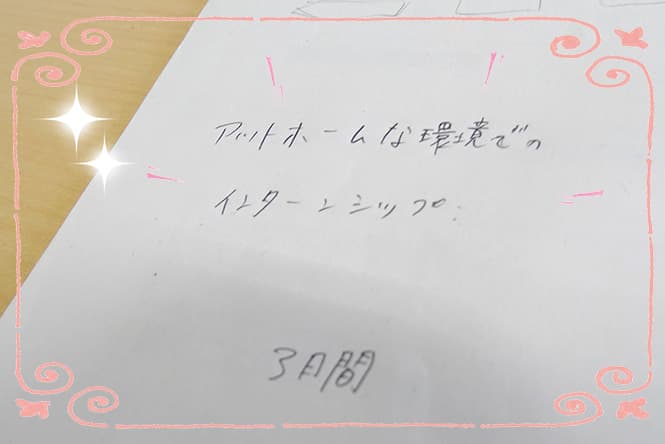 アットホームな環境での
インターンシップ.
3月間